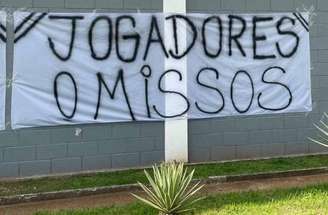 JOGADORES
OMISSOS